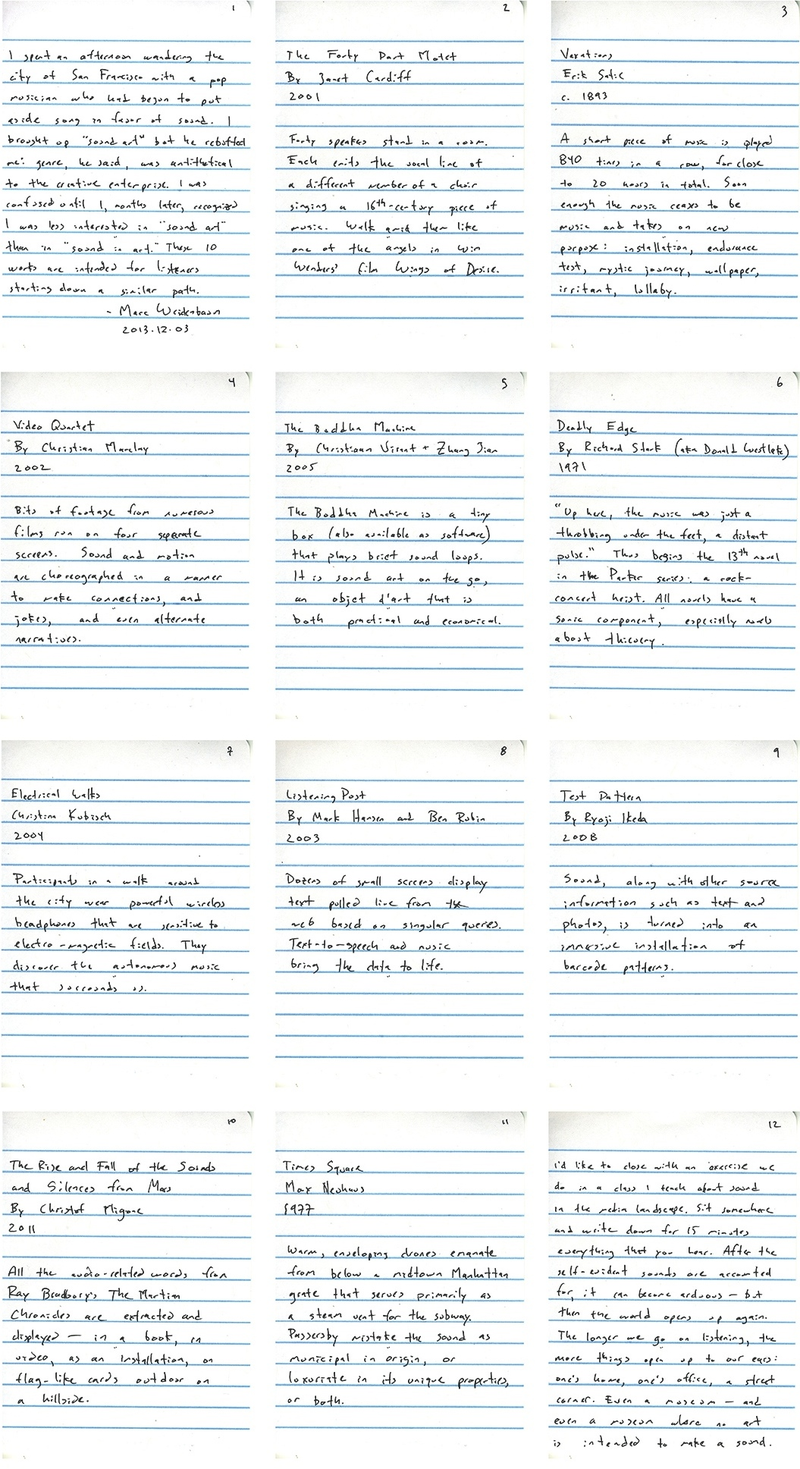 1
I spent an afternoon wandering the
city of San Francisco with a pop
musician who had begun to put
aside song in favor of sound. I
brought up "sound art" but he rebuffed
me: genre, he said, was antithetical
to the creative enterprise. I was
confused until I, months later, recognized
I was less interested in "sound art"
than in "sound in art." These 10
works are intended for listeners
starting down a similar path.
- Marc Weidenbaum
2013.12.03
2
The Forty Part Motet
By Janet Cardiff
2001
Forty speakers stand in a room.
Each emits the vocal line of
a different member of a choir
singing a 16th-century piece of
music. Walk amid them like
one of the angels in Wim
Wenders' film Wings of Desire.
3
Vexations
Erik Satie
c. 1893
A short piece of music is played
840 times in a row, for close
to 20 hours in total. Soon
enough the music ceases to be
music and takes on new
purpose: installation, endurance
test, mystic journey, wallpaper,
irritant, lullaby.
4
Video Quartet
By Christian Marclay
2002
Bits of footage from numerous
films run on four separate
screens. Sound and motion
are choreographed in a manner
to make connections, and
jokes, and even alternate
narratives.
5
The Buddha Machine
By Christiaan Virant + Zhang Jian
2005
The Buddha Machine is a tiny
box (also available as software)
that plays brief sound loops.
It is sound art on the go,
an objet d'art that is
both practical and economical.
6
Deadly Edge
By Richard Stark (aka Donald Westlake)
1971
"Up here, the music was just a
throbbing under the feet, a distant
pulse." Thus begins the 13th novel
in the Parker series: a rock-
concert heist. All novels have a
sonic component, especially novels
about thievery.
7
Electrical Walks
Christina Kubisch
2004
Participants in a walk around
the city wear powerful wireless
headphones that are sensitive to
electro-magnetic fields. They
discover the autonomous music
that surrounds us.
8
Listening Post
By Mark Hansen and Ben Rubin
2003
Dozens of small screens display
text pulled live from the
web based on singular queries.
Text-to-speech and music
bring the data to life.
9
Test Pattern
By Ryoji Ikeda
2008
Sound, along with other source
information such as text and
photos, is turned into an
immersive installation of
barcode patterns.
10
The Rise and Fall of the Sounds
and Silences from Mars
By Christof Migone
2011
All the audio-related words from
Ray Bradbury's The Martian
Chronicles are extracted and
displayed — in a book, in
video, as an installation, on
flag-like cards outdoor on
a hillside.
11
Times Square
Max Neuhaus
1977
Warm, enveloping drones emanate
from below a midtown Manhattan
grate that serves primarily as
a steam vent for the subway.
Passersby mistake the sound as
municipal in origin, or
luxuriate in its unique properties,
or both.
12
I'd like to close with an exercise we
do in a class I teach about sound
in the media landscape. Sit somewhere
and write down for 15 minutes
everything that you hear. After the
self-evident sounds are accounted
for, it can become arduous — but
then the world opens up again.
The longer we go on listening, the
more things open up to our ears:
one's home, one's office, a street
corner. Even a museum — and
even a museum where no art
is intended to make a sound.